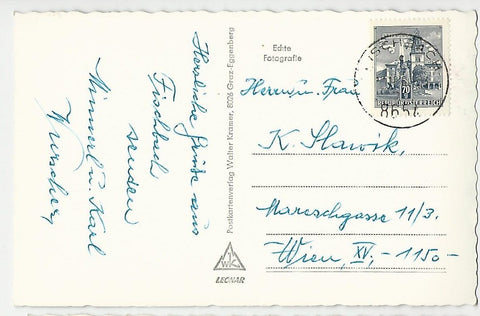 Herzliche Grüße aus
Fischbach
senden
Mimmerl u. Karl
Wurscher
Postkartenverlag Walter Kramer, 8026 Graz-Eggenberg
Echte
Fotografie
70
REPUBLIK ÖSTERREICH
8654
Herrn u. Frau
K. Slawik,
Mareschgasse 11/3.
Wien, XV, - 1150 -
WK
LEGNAR